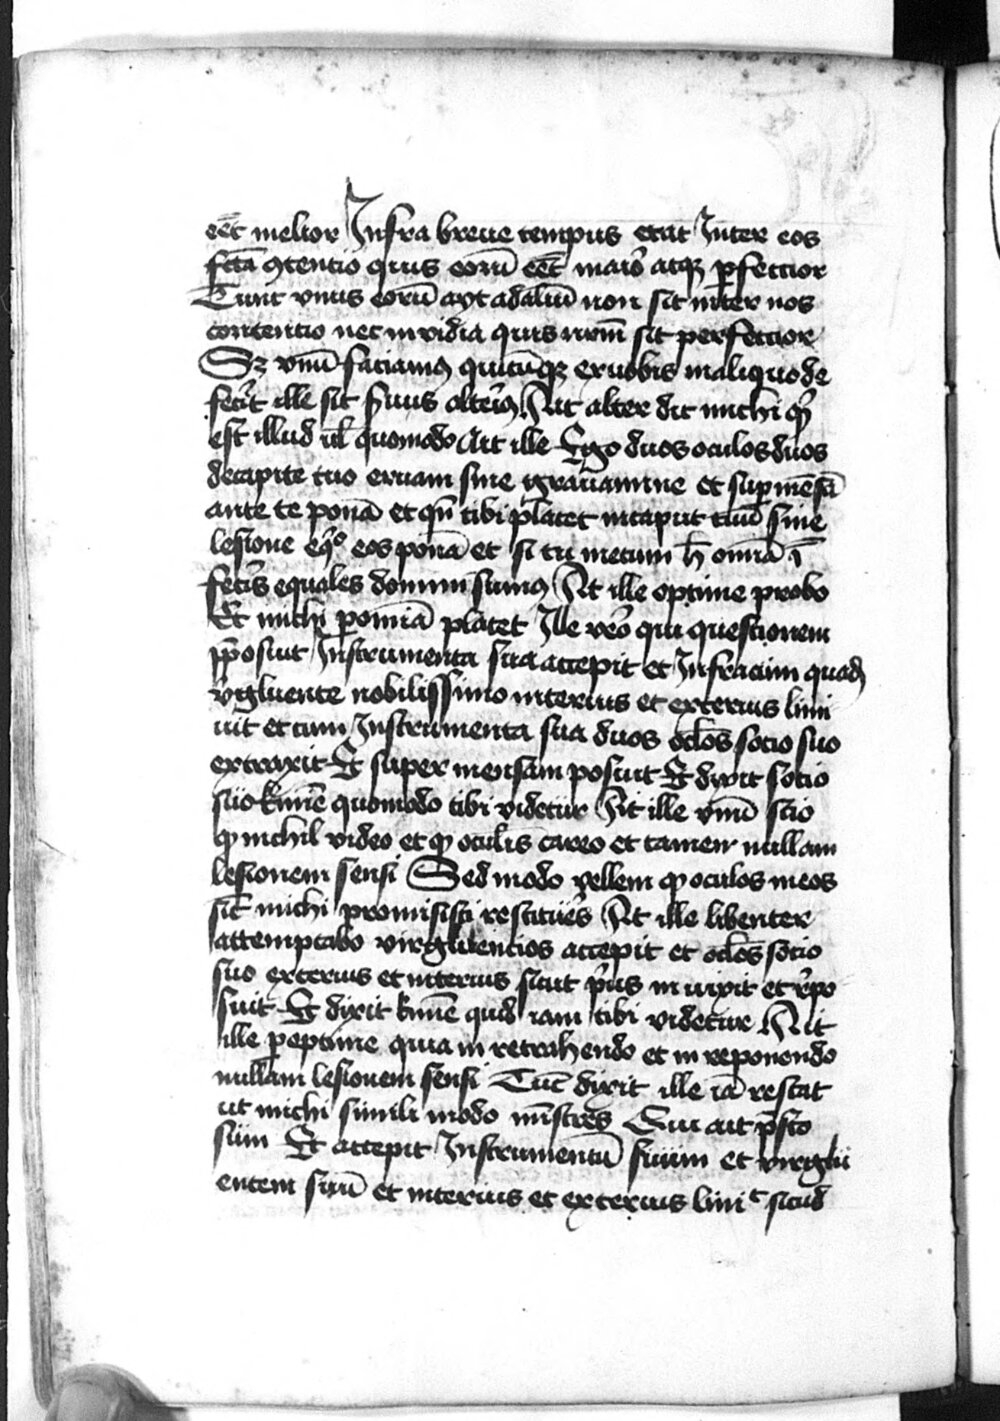 eēt melior Infra breue tempus erat Inter eos
fcta 9tencio quis eorū eēt maior atq; perfectior
Tunc vnus eorū ayt ad aliū non sit inter nos
contentio nec invidia quis nrm̄ sit perfectior
Sz vnū faciamus quicūq; ex vobis in aliquo de
fecerit ille sit seruus alterius Ait alter dic michi qd
est illud vel quomodo Ait ille Ego duos oculos duos
de capite tuo eruam sine grauamine et super mēsā
ante te ponā et qn̄ tibi placet in caput tuū sine
lesione eos ponā et si tu mecum h omnia
feceris equales domini sumus At ille optime probo
Et michi per omīa placet Ille vero qui questionem
proposuit Instrumenta sua accepit et Infra cum quodam
vngluente nobilissimo interius et exterius lini
uit et cum Instrumenta sua duos oclos socio suo
extraxit Et super mensam posuit Et dixit socio
suo kmē quomodo tibi videtur Ait ille vnū scio
qp nichil video et qp oculis careo et tamen nullam
lesionem sensi Sed modo vellem qp oculos meos
sic michi promisisti restitues At ille libenter
attemptabo virgluencios accepit et oclos socio
suo exterius et interius sicut prius inunxit et repo
suit Et dixit kmē quid iam tibi videtur Ait
ille peroptime quia in retrahendo et in reponendo
nullam lesionem sensi Tūc dixit ille iā restat
ut michi simili modo mīstres Qui ait presto
sum Et accepit Instrumentū suum et virglu
entem suū et interius et exterius linit sicud